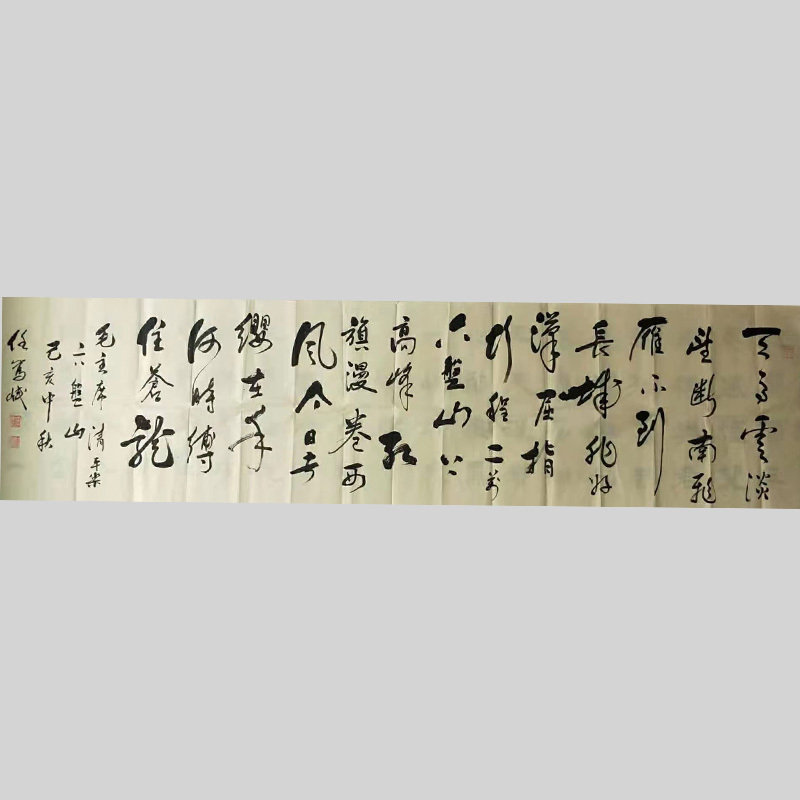 天高雲淡
望断南飛
雁不到
長城非好
漢屈指
行程二萬
六盤山上
高峰紅
旗漫卷西
風今日長
纓在手
何時縛
住蒼龍
毛主席清平樂
六盤山
己亥中秋
任